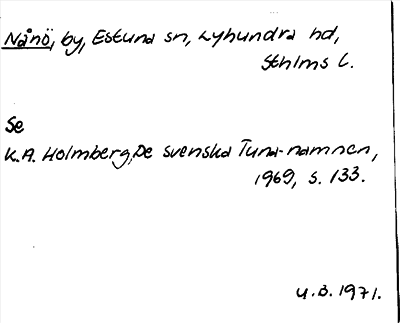 Nånö, by, Estuna sn, Lyhundra hd,
Sthlms l.
Se
K.A. Holmberg, De svenska Tuna-namnen,
1969, s. 133.
U.B. 1971.